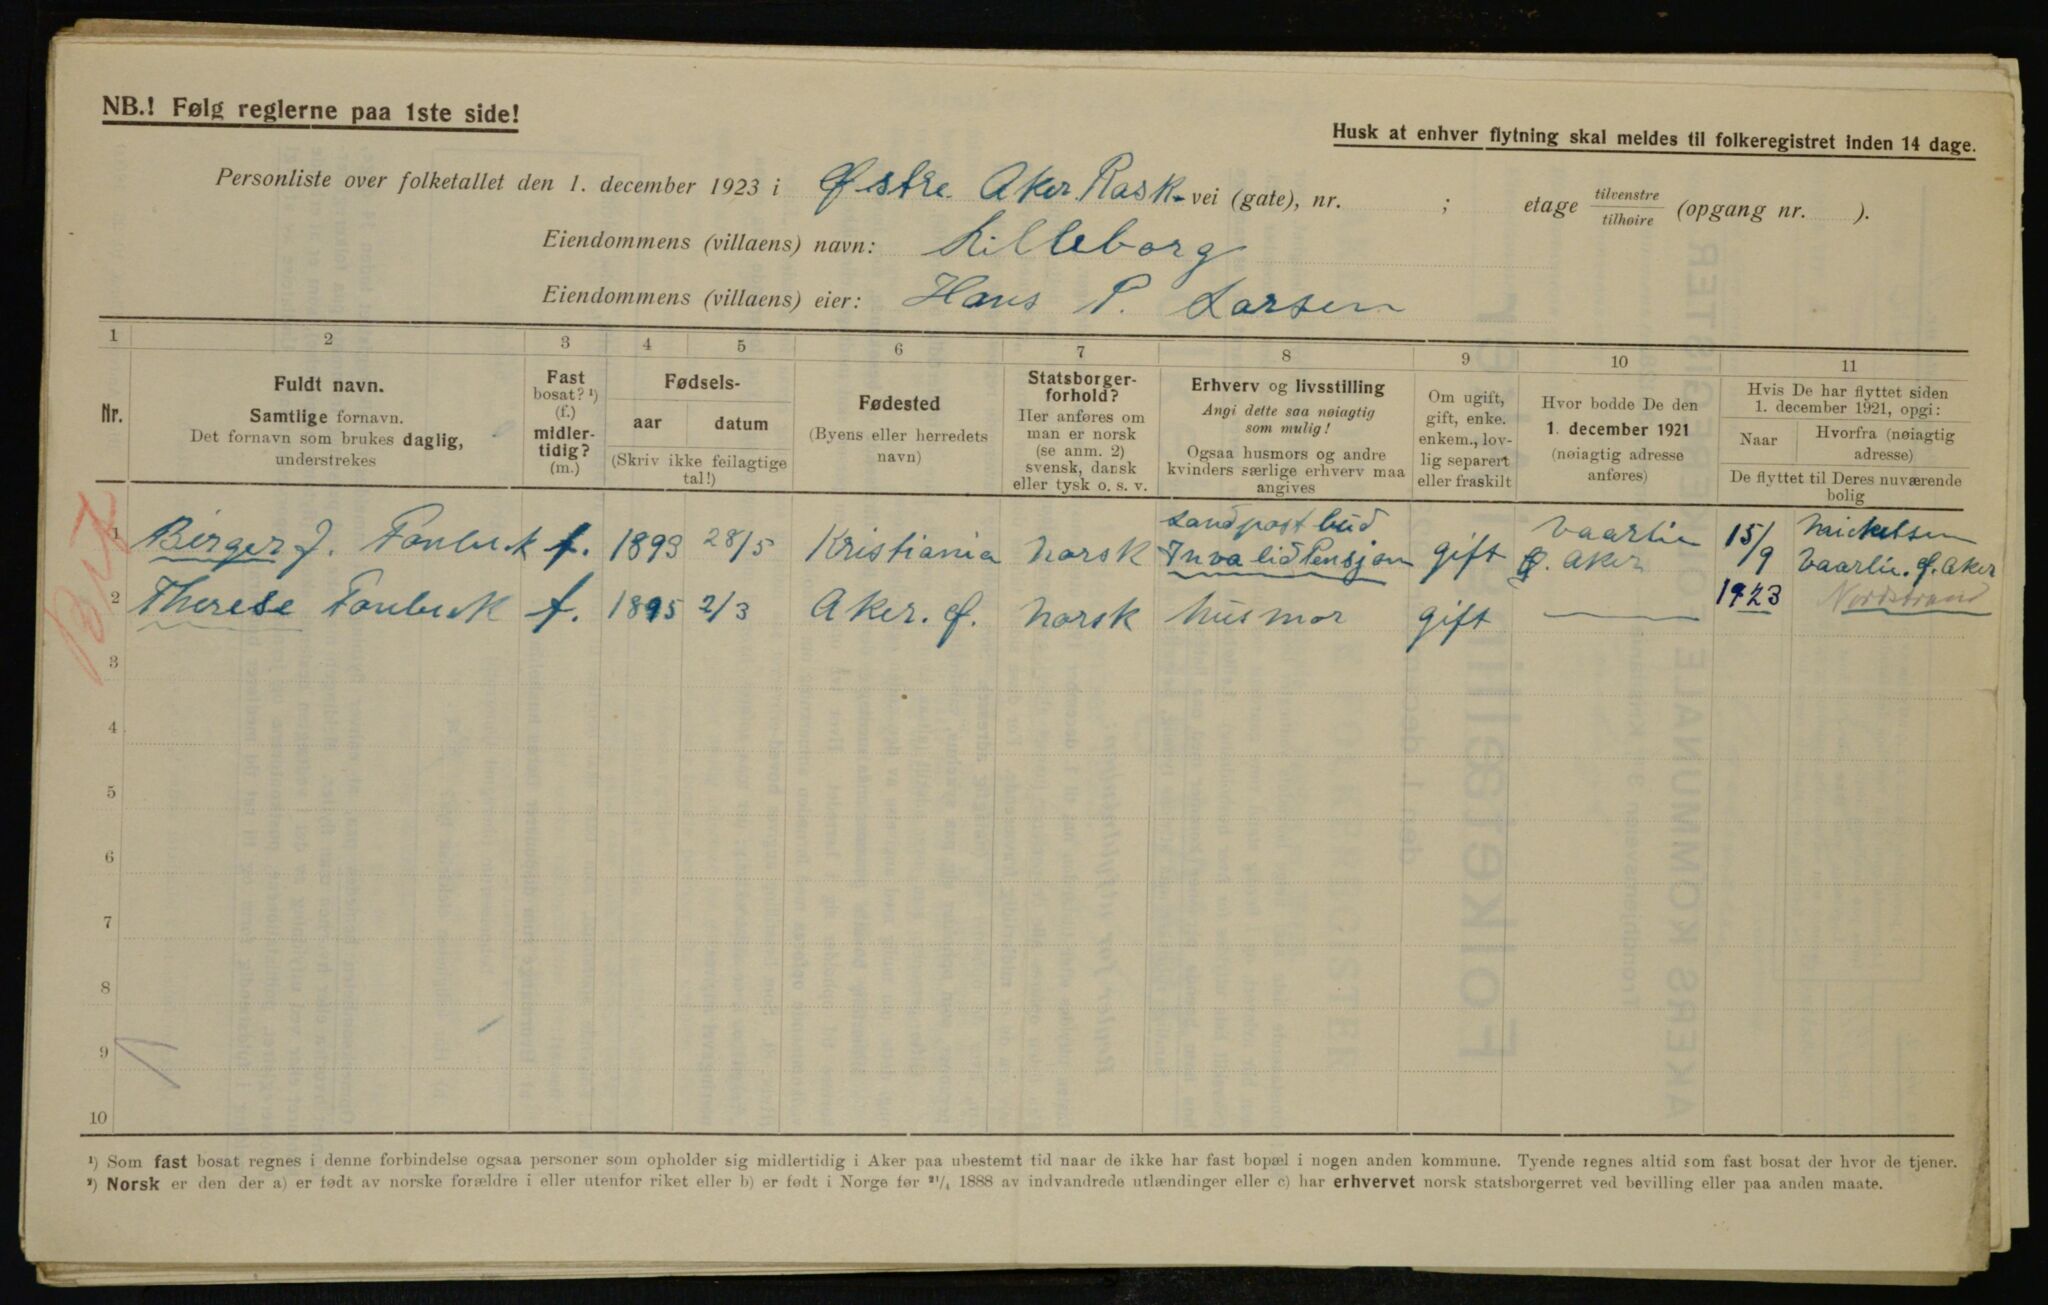 NB.! Følg reglerne paa 1ste side!
Husk at enhver flytning skal meldes til folkeregistret inden 14 dage.
Personliste over folketallet den 1. december 1923 i Østre Aker Rask-vei (gate), nr. ; etage tilvenstre/tilhøire (opgang nr. ).
Eiendommens (villaens) navn: Lilleborg
Eiendommens (villaens) eier: Hans P. Larsen
1 2 3 4 5 6 7 8 9 10 11
Nr.
Fuldt navn.
Samtlige fornavn.
Det fornavn som brukes daglig,
understrekes
Fast
bosat? ¹)
(f.)
midler-
tidig?
(m.)
Fødsels-
aar datum
(Skriv ikke feilagtige
tal!)
Fødested
(Byens eller herredets
navn)
Statsborger-
forhold?
Her anføres om
man er norsk
(se anm. 2)
svensk, dansk
eller tysk o. s. v.
Erhverv og livsstilling
Angi dette saa nøiagtig
som mulig!
Ogsaa husmors og andre
kvinders særlige erhverv maa
angives
Om ugift,
gift, enke.
enkem., lov-
lig separert
eller fraskilt
Hvor bodde De den
1. december 1921
(nøiagtig adresse
anføres)
Hvis De har flyttet siden
1. december 1921, opgi:
Naar
Hvorfra (nøiagtig
adresse)
De flyttet til Deres nuværende
bolig
1 Birger J. Fonbuk f. 1893 28/5 Kristiania Norsk Landpostbud
Invalidpensjon gift Vaarlie
Ø. Aker 15/9 Mickelsen
Vaarlie. Ø. Aker
2 Therese Fonbuk f. 1895 2/3 Aker. Ø. Norsk Husmor gift — 1923 Nordstrand
3
4
5
6
7
8
9
10
¹) Som fast bosat regnes i denne forbindelse ogsaa personer som opholder sig midlertidig i Aker paa ubestemt tid naar de ikke har fast bopæl i nogen anden kommune. Tyende regnes altid som fast bosat der hvor de tjener.
²) Norsk er den der a) er født av norske forældre i eller utenfor riket eller b) er født i Norge før ²¹/₄ 1888 av indvandrede utlændinger eller c) har erhvervet norsk statsborgerret ved bevilling eller paa anden maate.